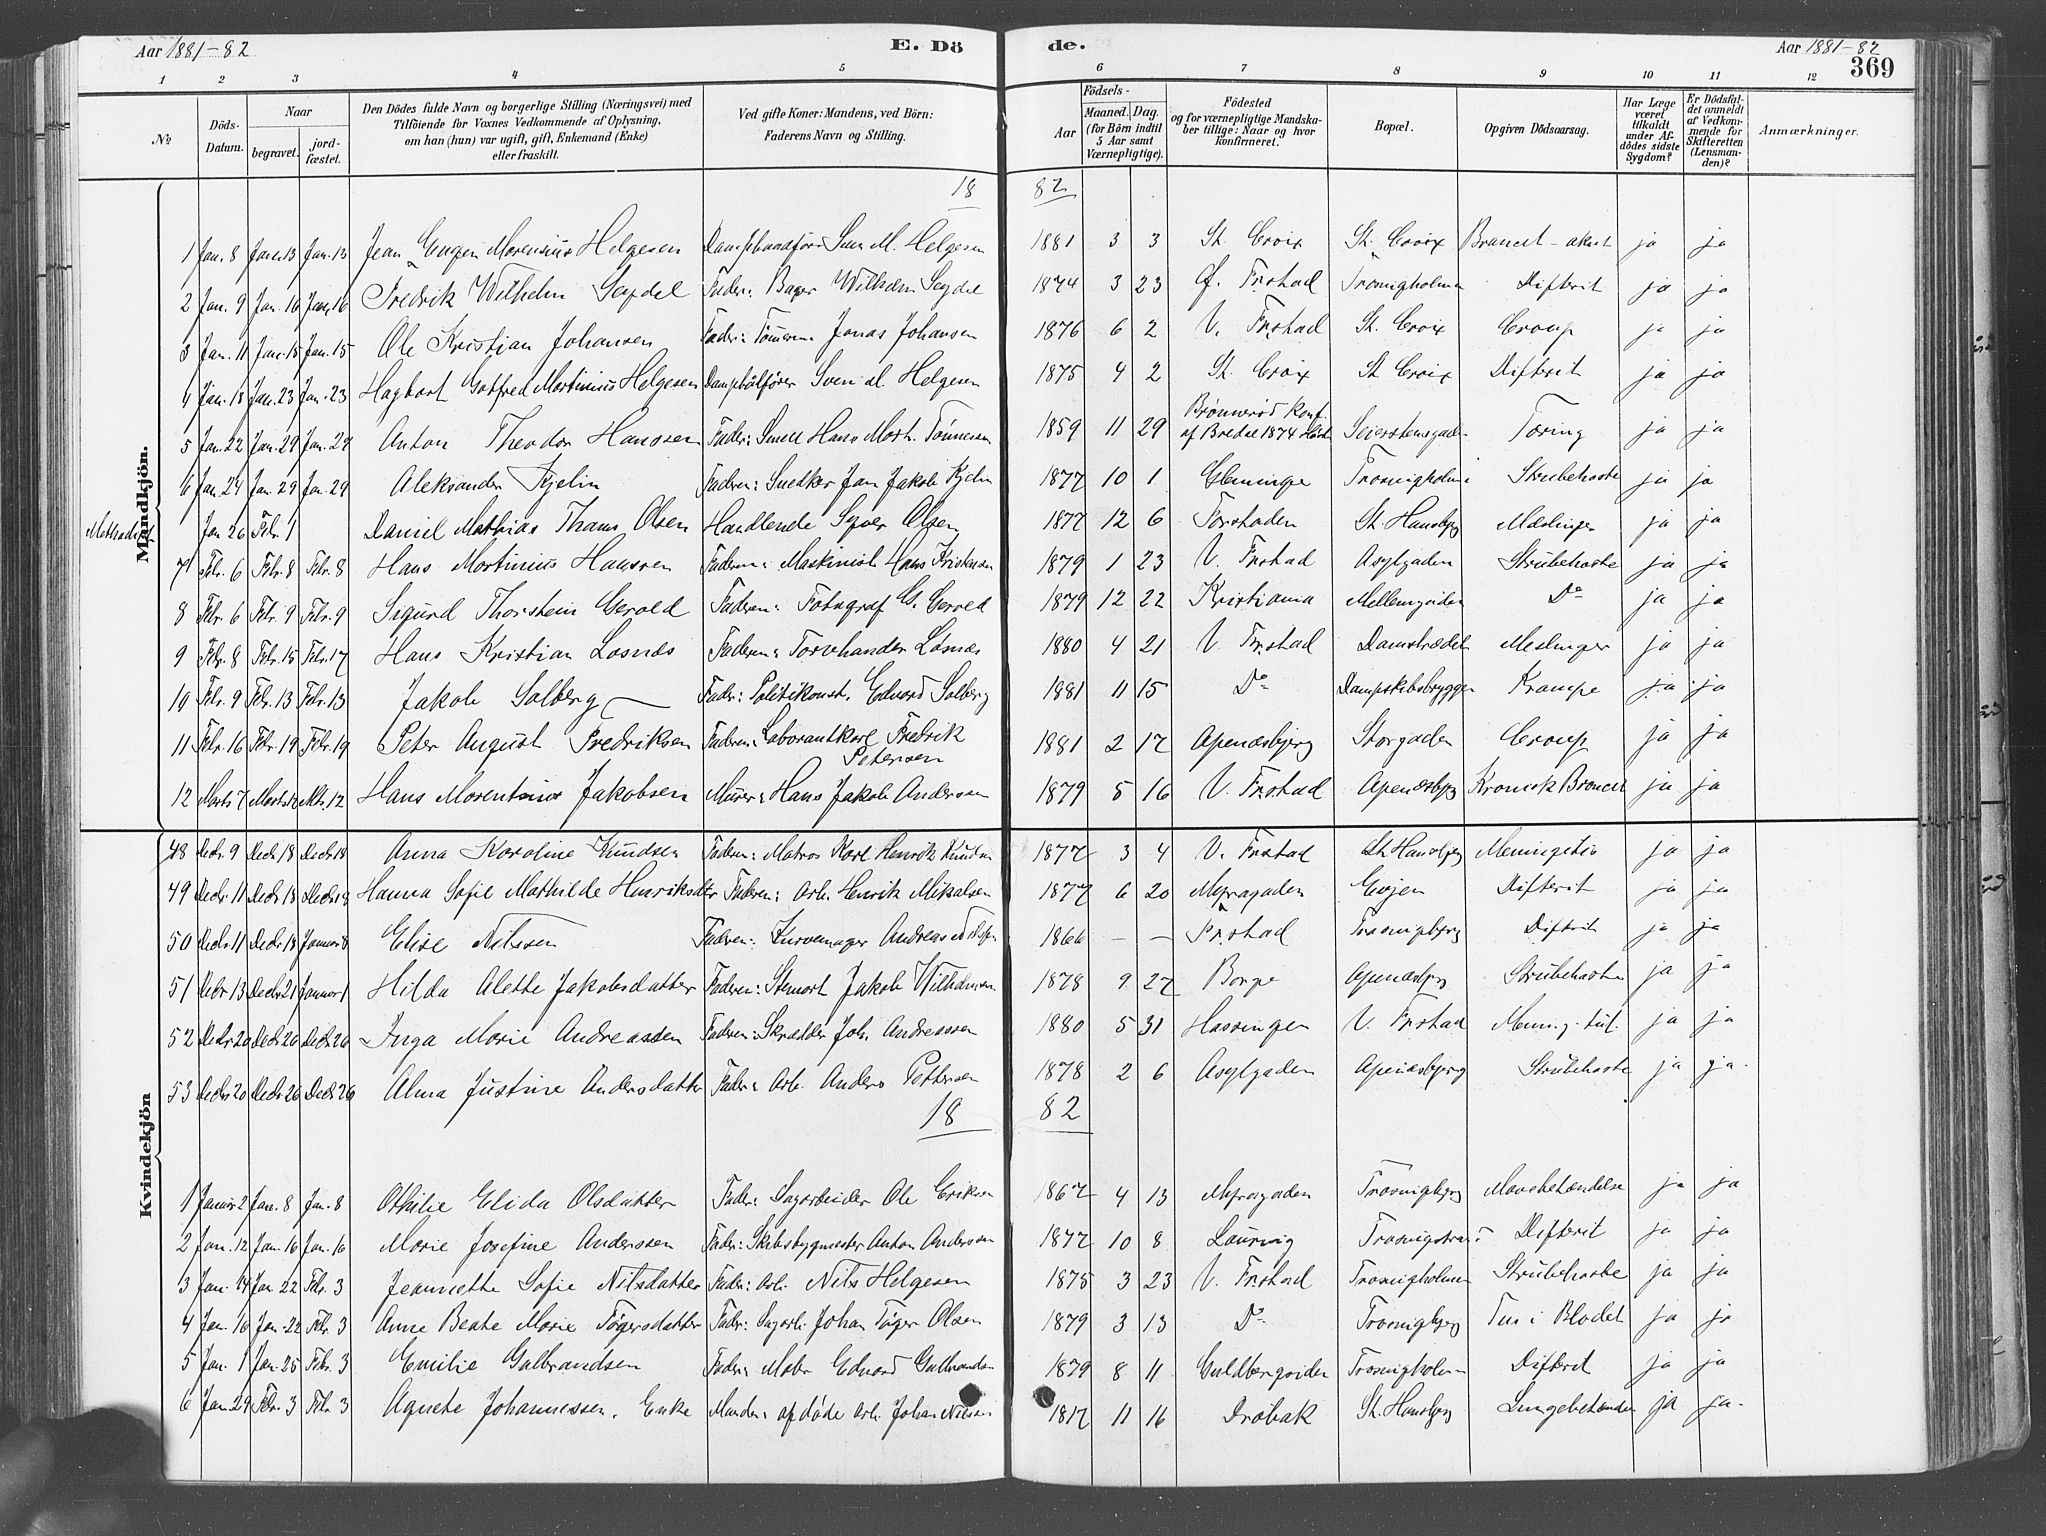 Aar 1881-82 E. Dö de. Aar 1881-82
369
1 2 3 4 5 6 7 8 9 10 11 12
№ Döds-Datum. Naar begravet. jord-fæstet. Den Dödes fulde Navn og borgerlige Stilling (Næringsvei) med Tilföiende for Voxnes Vedkommende af Oplysning, om han (hun) var ugift, gift, Enkemand (Enke) eller fraskilt. Ved gifte Koner: Mandens, ved Börn: Faderens Navn og Stilling. Födsels- Aar Maaned. Dag. (for Börn indtil 5 Aar samt Værnepligtige). Födested og for værnepligtige Mandskaber tillige: Naar og hvor konfirmeret. Bopæl. Opgiven Dödsaarsag. Har Læge været tilkaldt under Afdödes sidste Sygdom? Er Dödsfaldet anmeldt af Vedkommende for Skifteretten (Lensmanden)? Anmærkninger.
Mandkjön.
18 82
1 Jan. 8 Jan. 13 Jan. 13 Jean Eugen Morensius Helgesen Dampbaadfør: Sven M. Helgesen 1881 3 3 St. Croix St. Croix Broncit-akut ja ja
2 Jan. 9 Jan. 16 Jan. 16 Fredrik Wilhelm Seydel Fader: Bager Wilhelm Seydel 1874 3 23 G. Frstad Trosvigholmen Difterit ja ja
3 Jan. 11 Jan. 15 Jan. 15 Ole Kristian Johansen Fader: Tömerm. Jonas Johansen 1876 6 2 V. Frstad St. Croix Croup ja ja
4 Jan. 18 Jan. 23 Jan. 23 Hagbart Gotfred Martinius Helgesen Dampbåtfører Sven M. Helgesen 1875 4 2 St. Croix St. Croix Difterit ja ja
5 Jan. 22 Jan. 29 Jan. 29 Anton Theodor Hanssen Fader: Smed Hans Mort. Tönnesen 1859 11 29 Brönnerød Konf. af Bredal 1874 Seierstensgade Tæring ja ja
6 Jan. 24 Jan. 29 Jan. 29 Aleksander Kjelin Faderen: Snedker Jan Jakob Kjelin 1877 10 1 Glemminge Trosvigholm Strubehoste ja ja
Methodist Jan 26 Febr. 1 Daniel Mathias Thams Olsen Handlende Syver Olsen 1877 12 6 Forstaden St. Hansbjg Mæslinger ja ja
7 Febr. 6 Febr. 8 Febr. 8 Hans Mortinius Hanssen Faderen: Maskinist Hans Kristensen 1879 1 23 V. Frstad Asylgaden Strubehoste ja ja
8 Febr. 6 Febr. 9 Febr. 9 Sigurd Thorstein Gerold Faderen: Fotograf G. Gerold 1879 12 22 Kristiania Mellemgaden Do ja ja
9 Febr. 8 Febr. 15 Febr. 17 Hans Kristian Løsnæs Faderen: Torvhandler Løsnæs 1880 4 21 V. Frstad Damstrædet Meslinger ja ja
10 Febr. 9 Febr. 13 Febr. 13 Jakob Solberg Fader: Politikonst. Edvard Solberg 1881 11 15 Do Dampskibsbryggen Krampe ja ja
11 Febr. 16 Febr. 19 Febr. 19 Peter August Fredriksen Faderen: Laborantkarl Fredrik Petersen 1881 2 17 Apenæsbjerg Storgaden Croup ja ja
12 Marts 7 Marts 12 Mts. 12 Hans Morentinus Jakobsen Murer: Hans Jakob Anderssen 1879 5 16 V. Frstad Apenæsbjg Kronisk Broncit ja ja
Kvindekjön
48 Decbr. 9 Decb. 18 Decb 18 Anna Karoline Knudsen Faderen: Matros Karl Henrik Knudsen 1877 3 4 V. Frstad St. Hansbjg Meningitis ja ja
49 Decbr. 11 Decb 18 Decb 18 Hanna Sofie Mathilde Henriksdtr Faderen: Arb. Henrik Mikalsen 1877 6 20 Myragaden Evjen Difterit ja ja
50 Decb. 11 Decb. 18 Januar 8 Elise Nilssen Faderen: Kurvemager Andreas 1866 – – Frstad Trosvigbjerg Difterit ja ja
51 Decbr. 13 Decbr. 21 Januar 1 Hilda Alette Jakobsdatter Faderen: Stenarb. Jakob Wilhelmsen 1878 9 27 Borge Apenæsbjg Strubehoste ja ja
52 Decbr. 20 Decb 26 Decb. 26 Inga Marie Andreassen Faderen: Skrædder Joh. Andreassen 1880 5 31 Hassingen V. Frstad Mening. tub. ja ja
53 Decbr. 20 Decb 26 Decb. 26 Alma Justine Andersdatter Fader: Arb. Anders Pettersen 1878 2 6 Asylgaden Apenæsbjerg Strubehoste ja ja
18 82
1 Januar 2 Jan. 8 Jan. 8 Othilie Elida Olsdatter Fader: Sagarbeider Ole Eriksen 1867 4 13 Myragaden Trosvigbjerg Mavebetændelse ja ja
2 Jan. 12 Jan. 16 Jan. 16 Marie Josefine Anderssen Fader: Skibsbygmester Anton Anderssen 1877 10 8 Laurvig Difterit ja ja
3 Jan. 14 Jan. 22 Febr. 3 Jeannette Sofie Nilsdatter Fader: Arb. Nils Helgesen 1875 3 23 V. Frstad Trosvigholmen Strubehoste ja ja
4 Jan. 16 Jan. 22 Febr. 3 Anne Beate Marie Tögersdatter Fader: Sagarb. Johan Töger Olsen 1879 3 13 Do Trosvigbjerg Tus i Blodet ja ja
5 Jan. 1 Jan. 25 Febr. 3 Emilie Gulbrandsen Fader: Maler Edvard Gulbrandsen 1879 8 11 Guldbergsiden Trosvigholmen Difterit ja ja
6 Jan. 29 Febr. 3 Febr. 3 Agnete Johannessen, Enke Manden: afdöde Arb. Johan Nielsen 1817 11 16 Drøbak St. Hansbjg Lungebetændelse ja ja